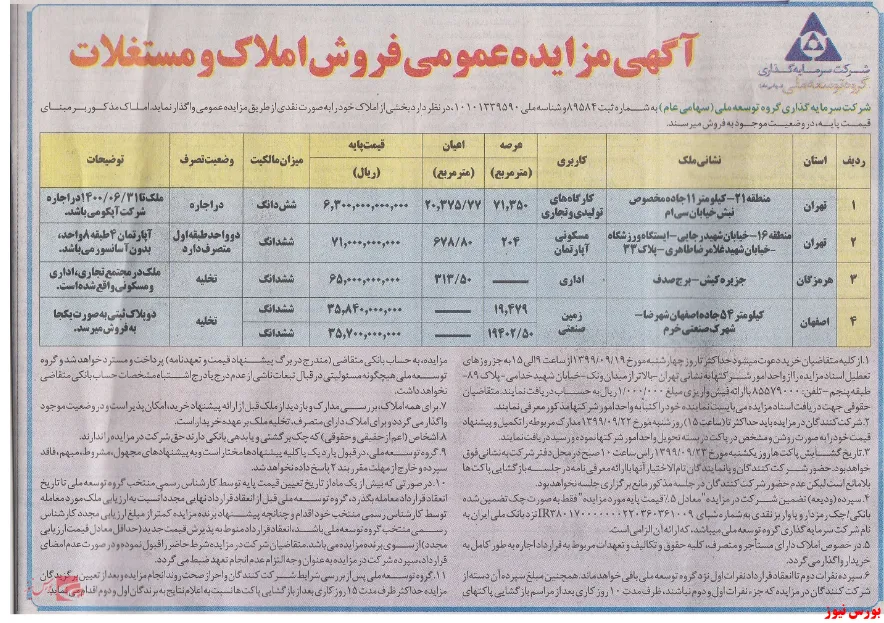 آگهی مزایده عمومی فروش املاک و مستغلات
شرکت سرمایه گذاری
گروه توسعه ملی
شرکت سرمایه گذاری گروه توسعه ملی (سهامی عام) به شماره ثبت ۸۹۵۸۴ و شناسه ملی ۱۰۱۰۱۳۳۹۵۹۰، در نظر دارد بخشی از املاک خود را به صورت نقدی از طریق مزایده عمومی واگذار نماید. املاک مذکور بر مبنای
قیمت پایه، در وضعیت موجود به فروش میرسند.
ردیف استان نشانی ملک کاربری عرصه (مترمربع) اعیان (مترمربع) قیمت پایه (ریال) میزان مالکیت وضعیت تصرف توضیحات
۱ تهران منطقه ۲۱- کیلومتر ۱۱ جاده مخصوص نبش خیابان سی ام کارگاه های تولیدی و تجاری ۷۱,۳۵۰ ۲۰,۳۷۵/۷۷ ۶,۳۰۰,۰۰۰,۰۰۰,۰۰۰ شش دانگ در اجاره ملک تا ۱۴۰۰/۰۶/۳۱ در اجاره شرکت آیکو می باشد.
۲ تهران منطقه ۱۶- خیابان شهید رجایی- ایستگاه ورزشگاه -خیابان شهید غلامرضا طاهری- پلاک ۳۳ مسکونی آپارتمان ۲۰۴ ۶۷۸/۸۰ ۷۱,۰۰۰,۰۰۰,۰۰۰ ششدانگ دو واحد طبقه اول متصرف دارد آپارتمان ۴ طبقه ۸ واحد، بدون آسانسور می باشد.
۳ هرمزگان جزیره کیش- برج صدف اداری —— ۳۱۳/۵۰ ۶۵,۰۰۰,۰۰۰,۰۰۰ ششدانگ تخلیه ملک در مجتمع تجاری، اداری و مسکونی واقع شده است.
۴ اصفهان کیلومتر ۵۴ جاده اصفهان شهرضا- شهرک صنعتی خرم زمین صنعتی ۱۹,۴۷۹ —— ۳۵,۸۴۰,۰۰۰,۰۰۰ ششدانگ تخلیه دو پلاک ثبتی به صورت یکجا به فروش میرسد.
۱۹۴۰۲/۵۰ —— ۳۵,۷۰۰,۰۰۰,۰۰۰ ششدانگ
۱. از کلیه متقاضیان خرید دعوت میشود حداکثر تا روز چهارشنبه مورخ ۱۳۹۹/۰۹/۱۹ از ساعت ۹ الی ۱۵ به جز روزهای
تعطیل اسناد مزایده را از واحد امور شرکتها به نشانی تهران- بالاتر از میدان ونک- خیابان شهید خدامی- پلاک ۸۹-
طبقه پنجم – تلفن: ۸۵۵۷۹۰۰۰ با ارائه فیش واریزی مبلغ ۱/۰۰۰/۰۰۰ ریال به حساب دریافت نمایند. متقاضیان
حقوقی جهت دریافت اسناد مزایده می بایست نماینده خود را کتبا به واحد امور شرکتها مذکور معرفی نمایند.
۲. شرکت کنندگان در مزایده باید حداکثر تا (ساعت ۱۵) روز شنبه مورخ ۱۳۹۹/۰۹/۲۲ مدارک مربوطه را تکمیل و پیشنهاد
قیمت خود را به صورت روشن و مشخص در پاکت در بسته تحویل واحد امور شرکتها نموده و رسید دریافت نمایند.
۳. تاریخ گشایش پاکت ها روز یکشنبه مورخ ۱۳۹۹/۰۹/۲۳ راس ساعت ۱۰ صبح در محل دفتر شرکت به نشانی فوق
خواهد بود. حضور شرکت کنندگان و یا نمایندگان تام الاختیار آنها با ارائه معرفی نامه در جلسه بازگشایی پاکت ها
بلامانع است لیکن عدم حضور شرکت کنندگان در جلسه مذکور مانع برگزاری جلسه نخواهد بود.
۴. سپرده (ودیعه) تضمین شرکت در مزایده "معادل ۵٪ قیمت پایه مورد مزایده" فقط به صورت چک تضمین شده
بانکی/چک رمزدار و یا واریز نقدی به شماره شبای IR۳۸۰۱۷۰۰۰۰۰۰۰۲۲۰۳۶۰۳۶۱۰۰۹ نزد بانک ملی ایران به
نام شرکت سرمایه گذاری گروه توسعه ملی میباشد، که ارائه آن الزامی است.
۵. در خصوص املاک دارای مستأجر و متصرف، کلیه حقوق و تکالیف و تعهدات مربوط به قرارداد اجاره به طور کامل به
خریدار واگذار می گردد.
۶. سپرده نفرات دوم تا انعقاد قرارداد نفرات اول نزد گروه توسعه ملی باقی خواهد ماند. همچنین مبلغ سپرده آن دسته از
شرکت کنندگان در مزایده که جزء نفرات اول و دوم نباشند، ظرف مدت ۱۰ روز کاری بعد از مراسم بازگشایی پاکتهای
مزایده، به حساب بانکی متقاضی (مندرج در برگ پیشنهاد قیمت و تعهدنامه) پرداخت و مسترد خواهد شد و گروه
توسعه ملی هیچگونه مسئولیتی در قبال تبعات ناشی از عدم درج یا درج اشتباه مشخصات حساب بانکی متقاضی
نخواهد داشت.
۷. برای همه املاک، بررسی مدارک و بازدید از ملک قبل از ارائه پیشنهاد خرید، امکان پذیر است و در وضعیت موجود
واگذار می گردد و برای املاک دارای متصرف، تخلیه ملک بر عهده خریدار است.
۸. اشخاص (اعم از حقیقی و حقوقی) که چک برگشتی و یا بدهی بانکی دارند حق شرکت در مزایده را ندارند.
۹. گروه توسعه ملی، در قبول یا رد یک یا کلیه پیشنهادها مختار است و به پیشنهادهای مجهول، مشروط، مبهم، فاقد
سپرده و خارج از مهلت مقرر بند ۲ پاسخ داده نخواهد شد.
۱۰. در صورتی که بیش از یک ماه از تاریخ تعیین قیمت پایه توسط کارشناس رسمی منتخب گروه توسعه ملی تا تاریخ
انعقاد قرارداد معامله بگذرد، گروه توسعه ملی قبل از انعقاد قرارداد نهایی مجدد انسبت به ارزیابی ملک مورد معامله
توسط کارشناس رسمی منتخب خود اقدام و چنانچه پیشنهاد برنده مزایده کمتر از مبلغ ارزیابی مجدد کارشناس
رسمی منتخب گروه توسعه ملی باشد، انعقاد قرارداد منوط به پذیرش قیمت جدید (حداقل معادل قیمت ارزیابی
مجدد) از سوی برنده مزایده می باشد. متقاضیان شرکت در مزایده شرط حاضر را قبول نموده و در صورت عدم امضای
قرارداد، سپرده شرکت در مزایده به عنوان وجه التزام عدم انجام تعهد ضبط می گردد.
۱۱. گروه توسعه ملی پس از بررسی شرایط شرکت کنندگان و احراز صحت روند انجام مزایده و بعد از تعیین برندگان
مزایده حداکثر ظرف مدت ۱۵ روز کاری بعد از بازگشایی پاکت ها نسبت به اعلام نتایج به برندگان اول و دوم اقدام می نماید.
بورس نیوز